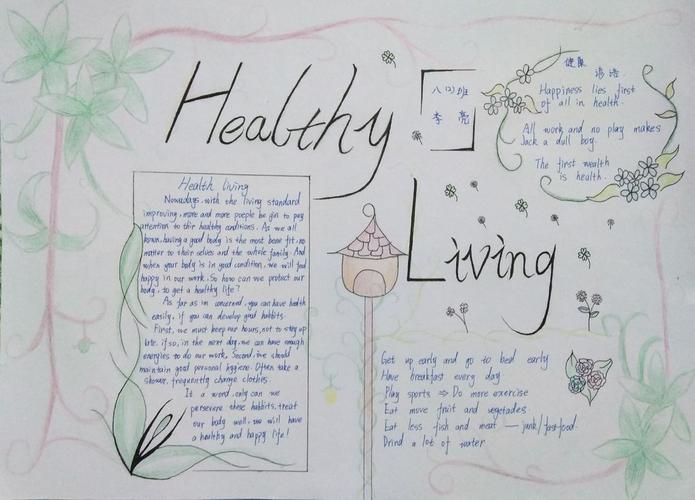 Healthy
Living
八(2)班
李亮
健康
谚语
Happiness lies first
of all in health.
All work and no play makes
Jack a dull boy.
The first wealth
is health.
Health living
Nowadays, with the living standard
improving, more and more poeple be gin to pay
attention to their healthy conditions. As we all
known, having a good body is the most bene fit, no
matter to their selves and the whole family. And
when your body is in good condition, we will feel
happy in our work. So how can we protect our
body, to get a healthy life?
As far as in concerned, you can have health
easily, if you can develop good habbits.
First, we must keep our hours, not to stay up
late. if so, in the next day, we can have enough
energies to do our work. Second, we should
maintain good personal hygiene. Often take a
shower, frequently change clothes.
It a word, only can we
persevere these habbits, treat
our body well, we will have
a healthy and happy life!
Get up early and go to bed early
Have breakfast every day
Play sports ⇒ Do more exercise
Eat move fruit and vegetades
Eat less fish and meat — junk/fast food.
Drind a lot of water